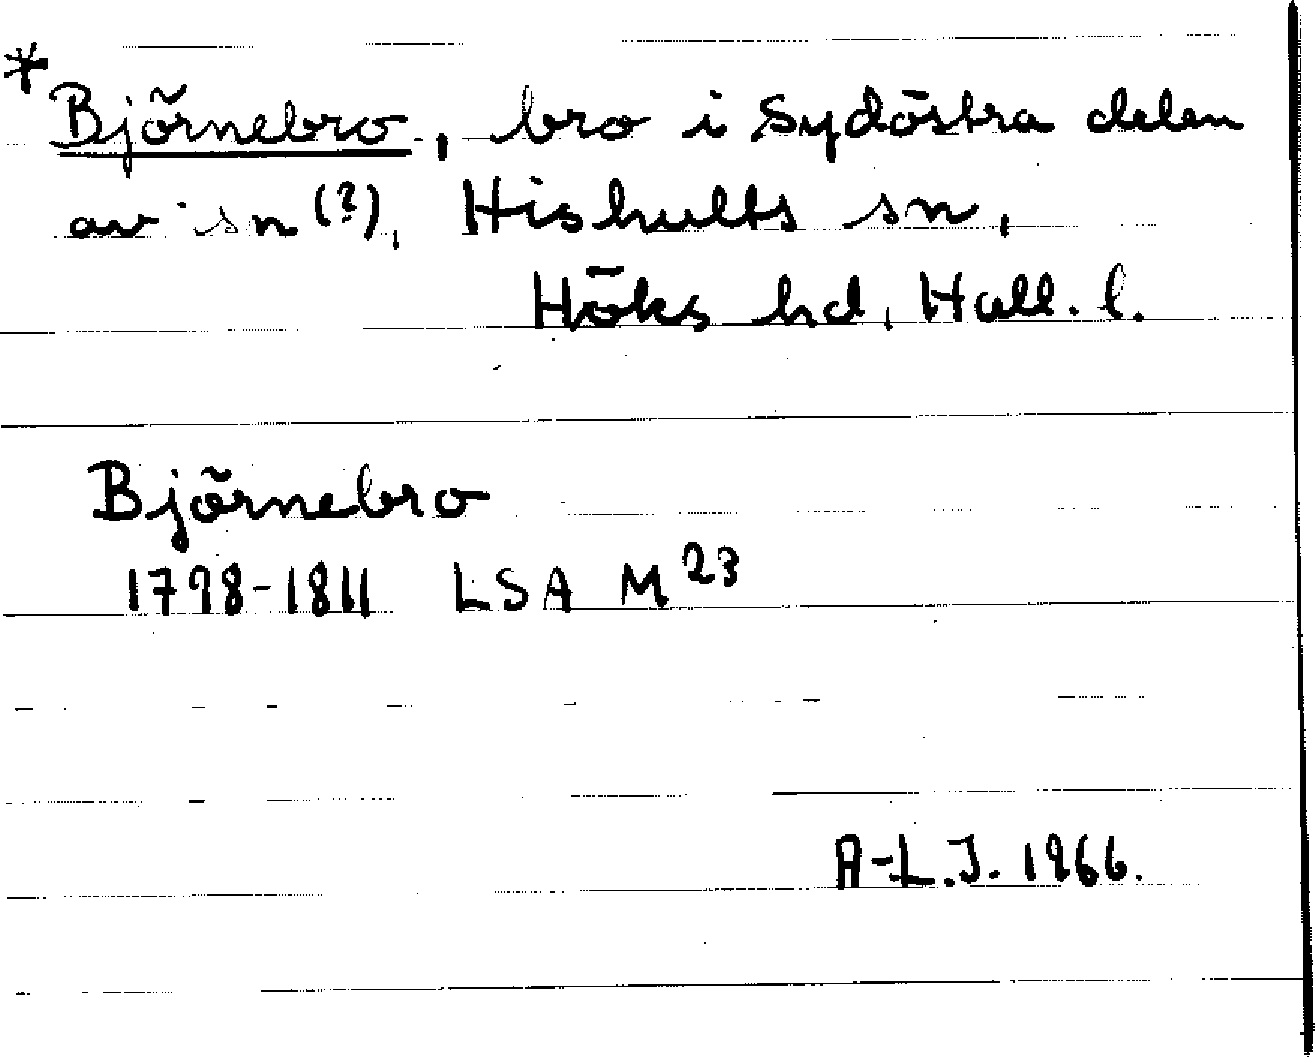 * Björnebro, bro i sydöstra delen
av sn (?), Hishults sn,
Höks hd, Hall. l.
Björnebro
1798-1811 LSA M23
A-L.J. 1966.